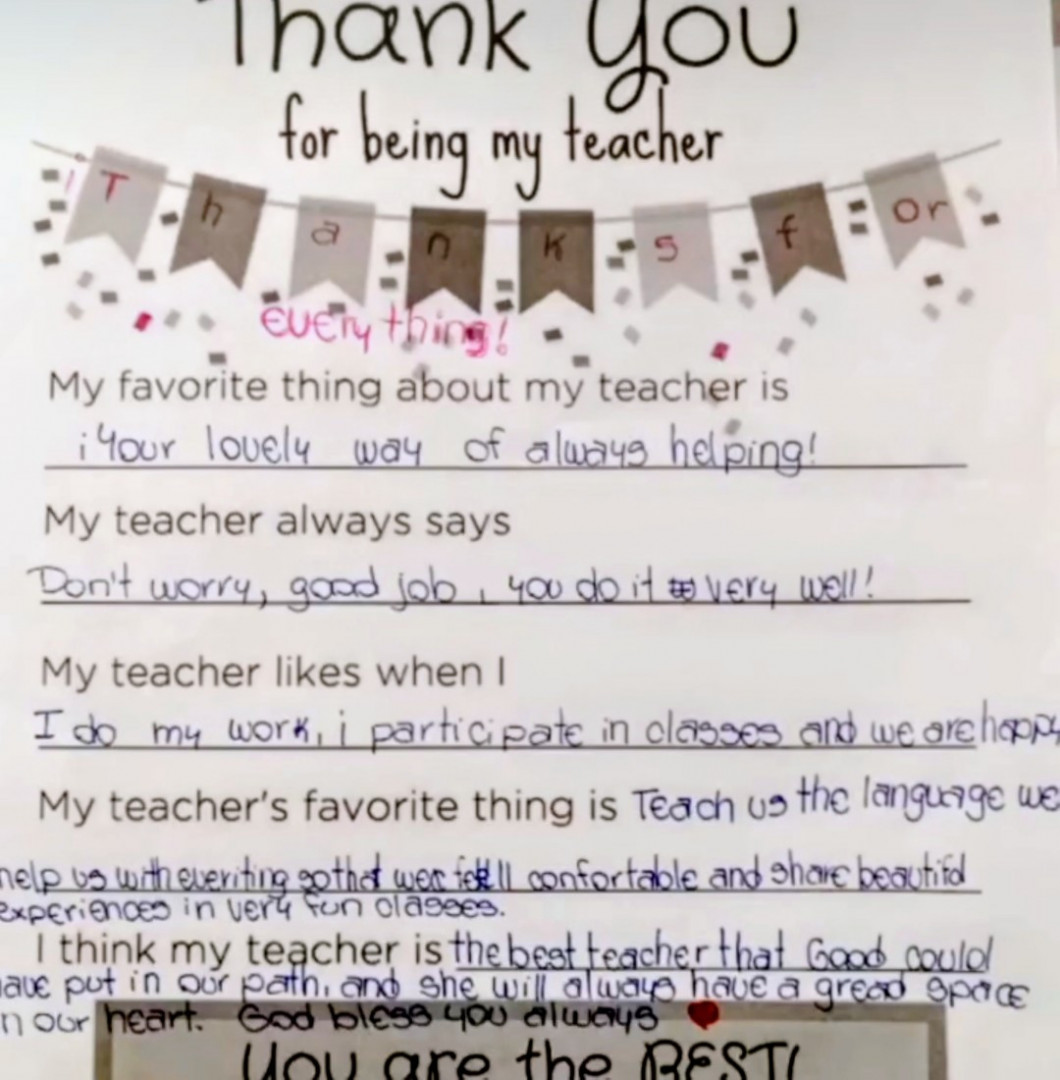 Thank you
for being my teacher
! T h a n k s f or
everything!
My favorite thing about my teacher is
¡Your lovely way of always helping!
My teacher always says
Don't worry, good job, you do it very well!
My teacher likes when I
I do my work, i participate in classes and we are happy
My teacher's favorite thing is Teach us the language we
help us with everiting so that wer feell confortable and share beautifd
experiences in very fun classes.
I think my teacher is the best teacher that Good could
ave put in our path, and she will always have a gread space
n our heart. God bless you always
You are the BEST!